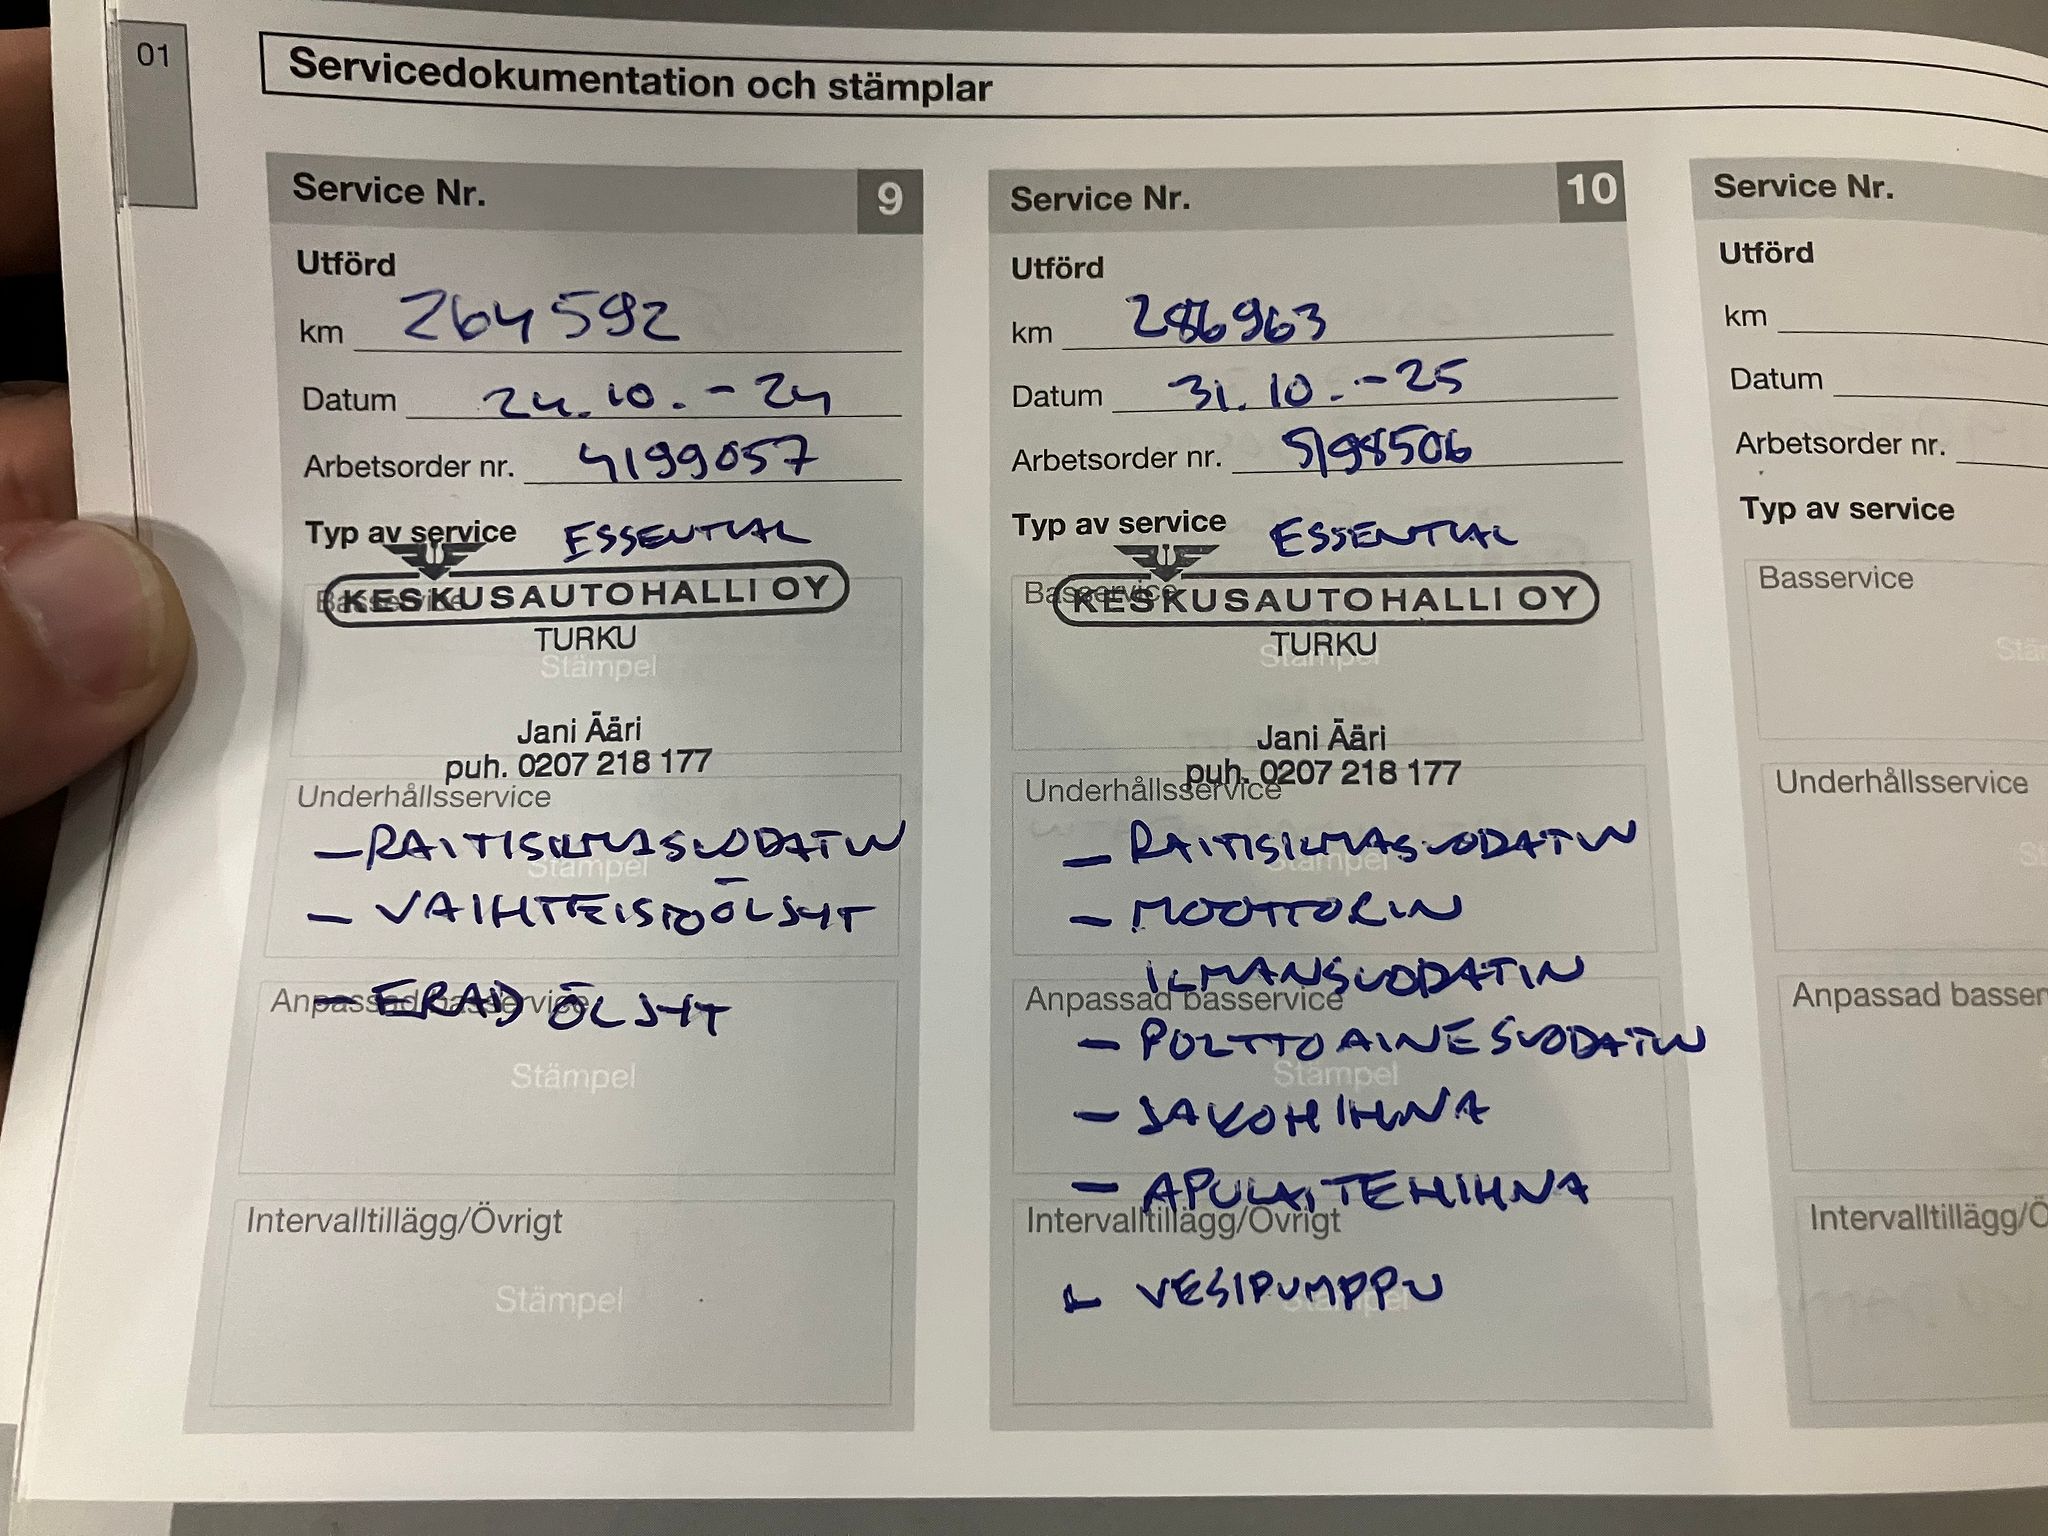 01
Servicedokumentation och stämplar
Service Nr. 9
Utförd
km 264592
Datum 24.10.-24
Arbetsorder nr. 4199057
Typ av service ESSENTIAL
Basservice
KESKUSAUTOHALLI OY
TURKU
Stämpel
Jani Ääri
puh. 0207 218 177
Underhållsservice
- RAITISILMASUODATIN
Stämpel
- VAIHTEISTOÖLJYT
Anpassad basservice
- ERAD ÖLJYT
Stämpel
Intervalltillägg/Övrigt
Stämpel
Service Nr. 10
Utförd
km 286963
Datum 31.10.-25
Arbetsorder nr. 5198506
Typ av service ESSENTIAL
Basservice
KESKUSAUTOHALLI OY
TURKU
Stämpel
Jani Ääri
puh. 0207 218 177
Underhållsservice
- RAITISILMASUODATIN
Stämpel
- MOOTTORIN
ILMANSUODATIN
Anpassad basservice
- POLTTOAINESUODATIN
Stämpel
- JAKOHIHNA
- APULAITEHIHNA
Intervalltillägg/Övrigt
- VESIPUMPPU
Stämpel
Service Nr.
Utförd
km
Datum
Arbetsorder nr.
Typ av service
Basservice
Underhållsservice
Anpassad
Intervalltillägg/